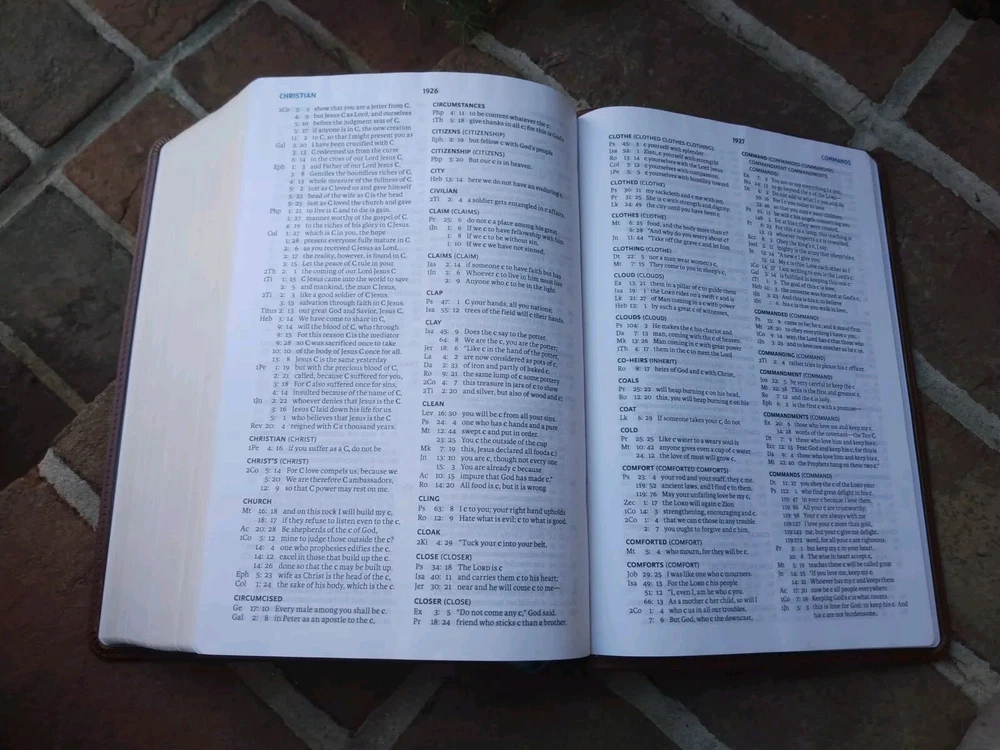 CHRISTIAN
1926
1Co 3: 3 show that you are a letter from C,
4: 5 but Jesus C as Lord, and ourselves
5: 10 before the judgment seat of C,
5: 17 if anyone is in C, the new creation
11: 2 to C, so that I might present you as
Gal 2: 20 I have been crucified with C
3: 13 C redeemed us from the curse
6: 14 in the cross of our Lord Jesus C,
Eph 1: 3 and Father of our Lord Jesus C,
3: 8 Gentiles the boundless riches of C,
4: 13 whole measure of the fullness of C.
5: 2 just as C loved us and gave himself
5: 23 head of the wife as C is the head
5: 25 just as C loved the church and gave
Php 1: 21 to live is C and to die is gain.
1: 27 manner worthy of the gospel of C.
4: 19 to the riches of his glory in C Jesus.
Col 1: 27 which is C in you, the hope
1: 28 present everyone fully mature in C
2: 6 as you received C Jesus as Lord,
2: 17 the reality, however, is found in C.
3: 15 Let the peace of C rule in your
2Th 2: 1 the coming of our Lord Jesus C
1Ti 1: 15 C Jesus came into the world to save
2: 5 and mankind, the man C Jesus,
2Ti 2: 3 like a good soldier of C Jesus.
3: 15 salvation through faith in C Jesus.
Titus 2: 13 our great God and Savior, Jesus C,
Heb 3: 14 We have come to share in C,
9: 14 will the blood of C, who through
9: 15 For this reason C is the mediator
9: 28 so C was sacrificed once to take
10: 10 of the body of Jesus C once for all.
13: 8 Jesus C is the same yesterday
1Pe 1: 19 but with the precious blood of C,
2: 21 called, because C suffered for you,
3: 18 For C also suffered once for sins,
4: 14 insulted because of the name of C,
1Jn 2: 22 whoever denies that Jesus is the C.
3: 16 Jesus C laid down his life for us.
5: 1 who believes that Jesus is the C
Rev 20: 4 reigned with C a thousand years.
CHRISTIAN (CHRIST)
1Pe 4: 16 if you suffer as a C, do not be
CHRIST'S (CHRIST)
2Co 5: 14 For C love compels us, because we
5: 20 We are therefore C ambassadors,
12: 9 so that C power may rest on me.
CHURCH
Mt 16: 18 and on this rock I will build my c,
18: 17 if they refuse to listen even to the c,
Ac 20: 28 Be shepherds of the c of God,
1Co 5: 12 mine to judge those outside the c?
14: 4 one who prophesies edifies the c.
14: 12 excel in those that build up the c.
14: 26 done so that the c may be built up.
Eph 5: 23 wife as Christ is the head of the c,
Col 1: 24 the sake of his body, which is the c.
CIRCUMCISED
Ge 17: 10 Every male among you shall be c.
Gal 2: 8 in Peter as an apostle to the c,
CIRCUMSTANCES
Php 4: 11 to be content whatever the c.
1Th 5: 18 give thanks in all c; for this is God's
CITIZENS (CITIZENSHIP)
Eph 2: 19 but fellow c with God's people
CITIZENSHIP (CITIZENS)
Php 3: 20 But our c is in heaven.
CITY
Heb 13: 14 here we do not have an enduring c,
CIVILIAN
2Ti 2: 4 a soldier gets entangled in c affairs,
CLAIM (CLAIMS)
Pr 25: 6 do not c a place among his great
1Jn 1: 6 If we c to have fellowship with him
1: 8 If we c to be without sin,
1: 10 If we c we have not sinned,
CLAIMS (CLAIM)
Jas 2: 14 if someone c to have faith but has
1Jn 2: 6 Whoever c to live in him must live
2: 9 Anyone who c to be in the light
CLAP
Ps 47: 1 C your hands, all you nations;
Isa 55: 12 trees of the field will c their hands.
CLAY
Isa 45: 9 Does the c say to the potter,
64: 8 We are the c, you are the potter;
Jer 18: 6 "Like c in the hand of the potter,
La 4: 2 are now considered as pots of c,
Da 2: 33 of iron and partly of baked c.
Ro 9: 21 the same lump of c some pottery
2Co 4: 7 this treasure in jars of c to show
2Ti 2: 20 and silver, but also of wood and c;
CLEAN
Lev 16: 30 you will be c from all your sins.
Ps 24: 4 one who has c hands and a pure
Mt 12: 44 swept c and put in order.
23: 25 You c the outside of the cup
Mk 7: 19 this, Jesus declared all foods c.)
Jn 13: 10 you are c, though not every one
15: 3 You are already c because
Ac 10: 15 impure that God has made c."
Ro 14: 20 All food is c, but it is wrong
CLING
Ps 63: 8 I c to you; your right upholds
Ro 12: 9 Hate what is evil; c to what is good.
CLOAK
2Ki 4: 29 "Tuck your c into your belt,
CLOSE (CLOSER)
Ps 34: 18 The LORD is c
Isa 40: 11 and carries them c to his heart;
Jer 30: 21 near and he will come c to me—
CLOSER (CLOSE)
Ex 3: 5 "Do not come any c," God said.
Pr 18: 24 friend who sticks c than a brother.
1927
COMMANDS
CLOTHE (CLOTHED CLOTHES CLOTHING)
Ps 45: 3 c yourself with splendor
Isa 52: 1 Zion, c yourself with strength!
Ro 13: 14 c yourselves with the Lord Jesus
Col 3: 12 c yourselves with compassion,
1Pe 5: 5 c yourselves with humility toward
CLOTHED (CLOTHE)
Ps 30: 11 my sackcloth and c me with joy,
Pr 31: 25 She is c with strength and dignity;
Lk 24: 49 the city until you have been c
CLOTHES (CLOTHE)
Mt 6: 25 food, and the body more than c?
6: 28 "And why do you worry about c?
Jn 11: 44 "Take off the grave c and let him
CLOTHING (CLOTHE)
Dt 22: 5 not a man wear women's c,
Mt 7: 15 They come to you in sheep's c,
CLOUD (CLOUDS)
Ex 13: 21 them in a pillar of c to guide them
Isa 19: 1 the LORD rides on a swift c and is
Lk 21: 27 of Man coming in a c with power
Heb 12: 1 by such a great c of witnesses,
CLOUDS (CLOUD)
Ps 104: 3 He makes the c his chariot and
Da 7: 13 man, coming with the c of heaven.
Mk 13: 26 Man coming in c with great power
1Th 4: 17 them in the c to meet the Lord
CO-HEIRS (INHERIT)
Ro 8: 17 heirs of God and c with Christ,
COALS
Pr 25: 22 will heap burning c on his head,
Ro 12: 20 this, you will heap burning c on his
COAT
Lk 6: 29 If someone takes your c, do not
COLD
Pr 25: 25 Like c water to a weary soul is
Mt 10: 42 anyone gives even a cup of c water
24: 12 the love of most will grow c,
COMFORT (COMFORTED COMFORTS)
Ps 23: 4 your rod and your staff, they c me.
119: 52 ancient laws, and I find c in them.
119: 76 May your unfailing love be my c,
Zec 1: 17 the LORD will again c Zion
1Co 14: 3 strengthening, encouraging and c.
2Co 1: 4 that we can c those in any trouble
2: 7 you ought to forgive and c him,
COMFORTED (COMFORT)
Mt 5: 4 who mourn, for they will be c.
COMFORTS (COMFORT)
Job 29: 25 I was like one who c mourners
Isa 49: 13 For the LORD c his people
51: 12 "I, even I, am he who c you
66: 13 As a mother c her child, so will I
2Co 1: 4 who c us in all our troubles,
7: 6 But God, who c the downcast,
COMMANDED (COMMAND)
COMMANDING (COMMAND)
2Ti 2: 4 rather tries to please his c officer.
COMMANDMENT (COMMAND)
Jos 22: 5 be very careful to keep the c
Mt 22: 38 This is the first and greatest c.
Ro 7: 12 and the c is holy,
Eph 6: 2 is the first c with a promise—
COMMANDMENTS (COMMAND)
Ex 20: 6 those who love me and keep my c.
34: 28 words of the covenant—the Ten C.
Dt 7: 9 those who love him and keep his c.
Ecc 12: 13 Fear God and keep his c, for this is
Da 9: 4 those who love him and keep his c,
Mt 22: 40 the Prophets hang on these two c."
COMMANDS (COMMAND)
Dt 11: 27 you obey the c of the LORD your
Ps 112: 1 who find great delight in his c.
119: 47 in your c because I love them.
119: 86 All your c are trustworthy;
119: 98 Your c are always with me
119:127 I love your c more than gold,
119:143 me, but your c give me delight.
119:172 word, for all your c are righteous.
Pr 3: 1 but keep my c in your heart,
10: 8 The wise in heart accept c,
Mt 5: 19 teaches these c will be called great
Jn 14: 15 "If you love me, keep my c.
14: 21 Whoever has my c and keeps them
Ac 17: 30 now he c all people everywhere
1Co 7: 19 Keeping God's c is what counts.
1Jn 5: 3 this is love for God: to keep his c. And
his c are not burdensome,